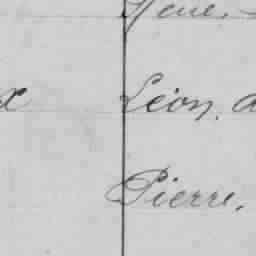 x Léon.
Pierre.